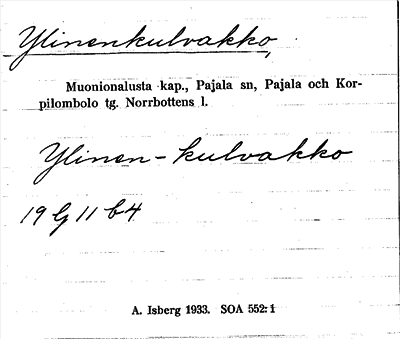 Ylinenkulvakko,
Muonionalusta kap., Pajala sn, Pajala och Kor-
pilombolo tg. Norrbottens l.
Ylinen-kulvakko
19 Lg 11 b4
A. Isberg 1933. SOA 552:1